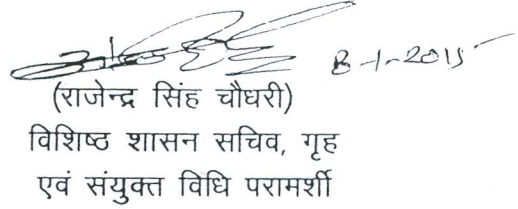 8-1-2015
(राजेन्द्र सिंह चौधरी)
विशिष्ठ शासन सचिव, गृह
एवं संयुक्त विधि परामर्शी